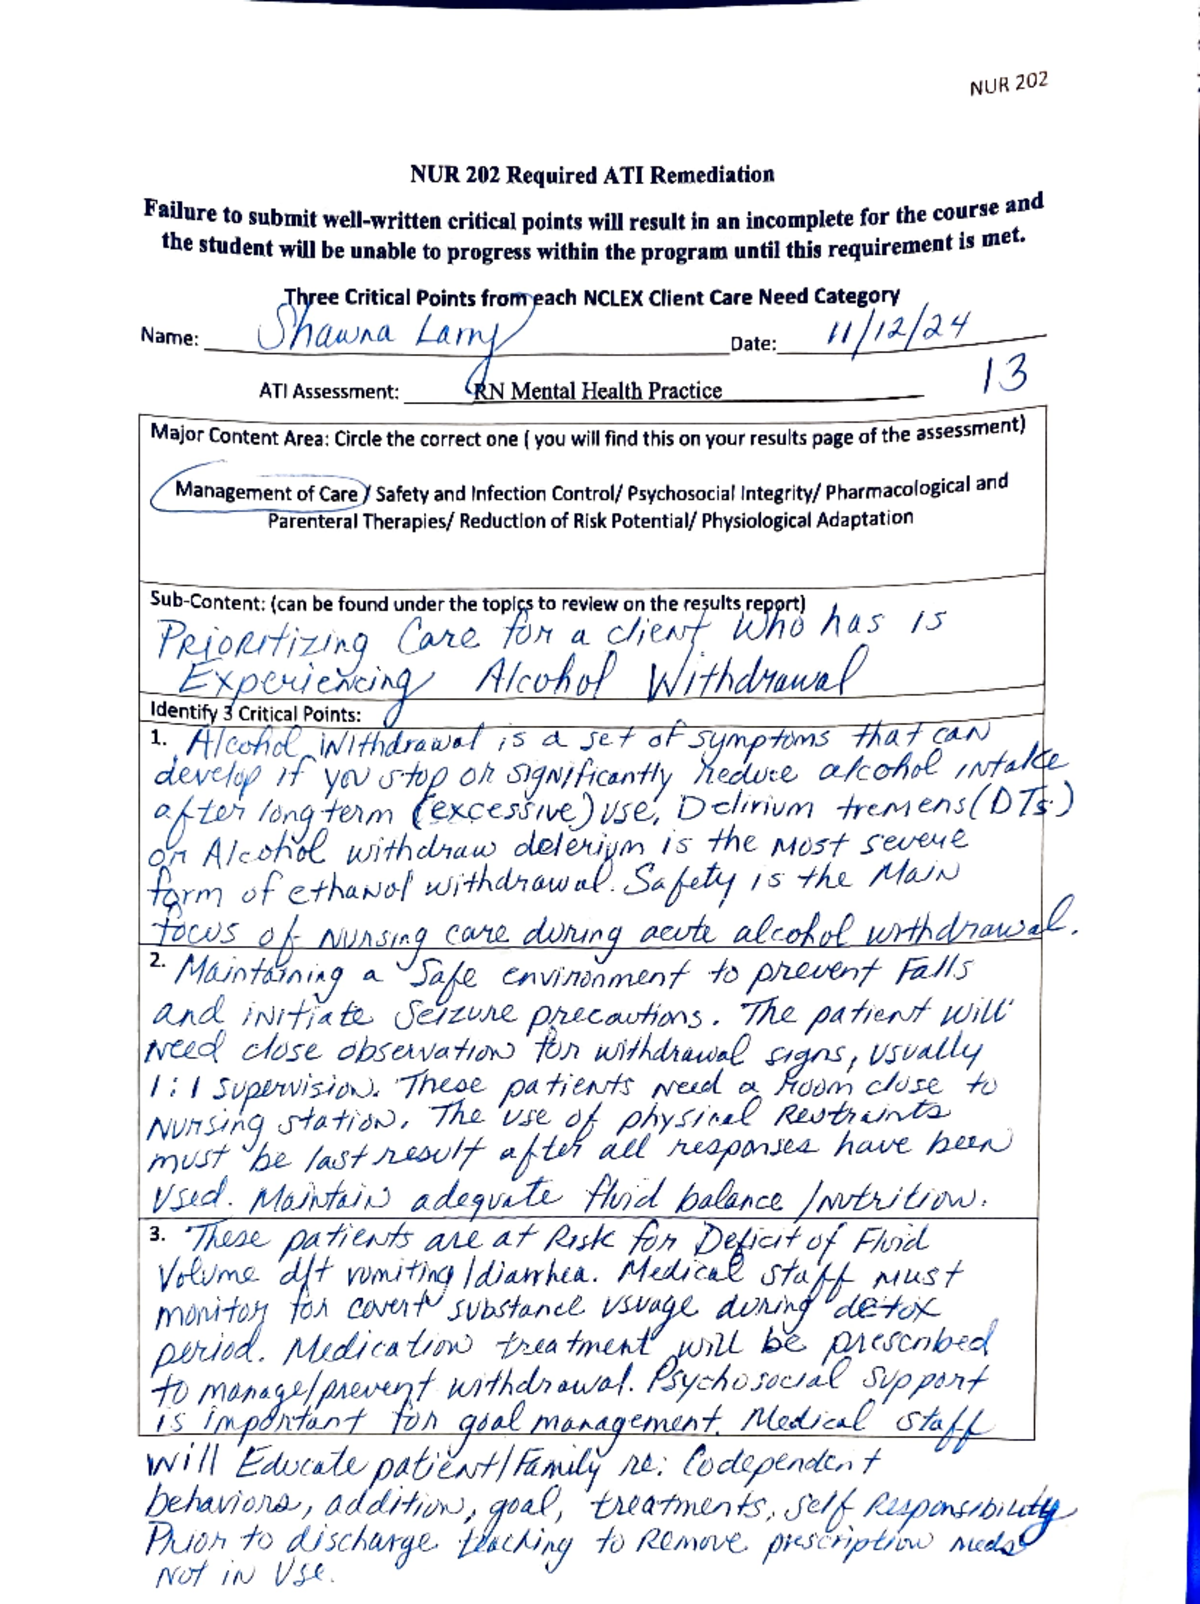 NUR 202
NUR 202 Required ATI Remediation
Failure to submit well-written critical points will result in an incomplete for the course and
the student will be unable to progress within the program until this requirement is met.
Three Critical Points from each NCLEX Client Care Need Category
Name: Shawna Larry Date: 11/12/24
ATI Assessment: RN Mental Health Practice 13
Major Content Area: Circle the correct one ( you will find this on your results page of the assessment)
Management of Care / Safety and Infection Control/ Psychosocial Integrity/ Pharmacological and
Parenteral Therapies/ Reduction of Risk Potential/ Physiological Adaptation
Sub-Content: (can be found under the topics to review on the results report)
Prioritizing Care for a client who has is
Experiencing Alcohol Withdrawal
Identify 3 Critical Points:
1. Alcohol withdrawal is a set of symptoms that can
develop if you stop or significantly reduce alcohol intake
after long term (excessive) use, Delirium tremens (DTs)
or Alcohol withdraw delerium is the most severe
form of ethanol withdrawal. Safety is the Main
focus of nursing care during acute alcohol withdrawal.
2. Maintaining a safe environment to prevent Falls
and initiate seizure precautions. The patient will
need close observation for withdrawal signs, usually
1:1 supervision. These patients need a room close to
nursing station. The use of physical Restraints
must be last result after all responses have been
used. Maintain adequate fluid balance /nutrition.
3. These patients are at Risk for Deficit of Fluid
Volume d/t vomiting/diarrhea. Medical staff must
monitor for covert substance usuage during detox
period. Medication treatment will be prescribed
to manage/prevent withdrawal. Psychosocial support
is important for goal management. Medical staff
will Educate patient/Family re: Codependent
behaviors, addition, goal, treatments, self Responsibility
Prior to discharge teaching to Remove prescription meds
not in use.